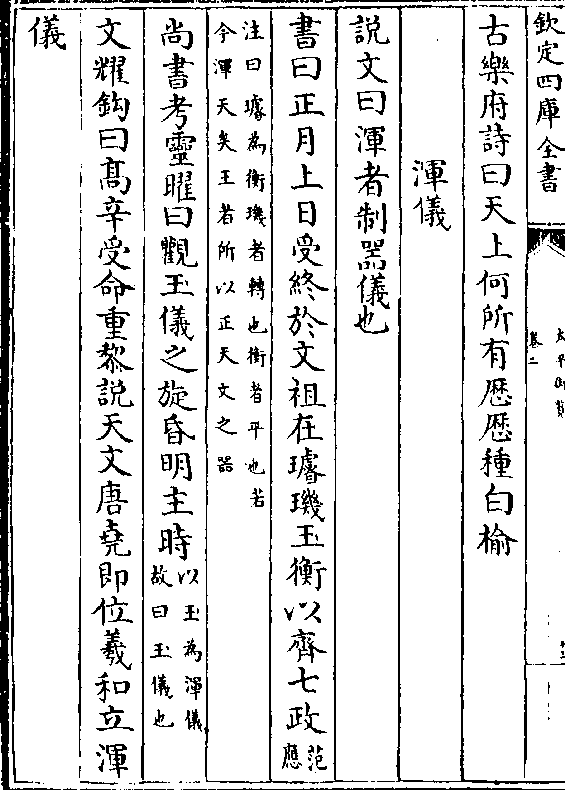 欽定四庫全書
太平御覧
卷二
古樂府詩曰天上何所有歴歴種白榆
渾儀
說文曰渾者制器儀也
書曰正月上日受終於文祖在璿璣玉衡以齊七政范應
注曰璿為衡璣者轉也衡者平也若
今渾天矣王者所以正天文之器
尚書考靈曜曰觀玉儀之旋昏明主時以玉為渾儀故曰玉儀也
文耀鈎曰髙辛受命重黎說天文唐堯即位羲和立渾
儀